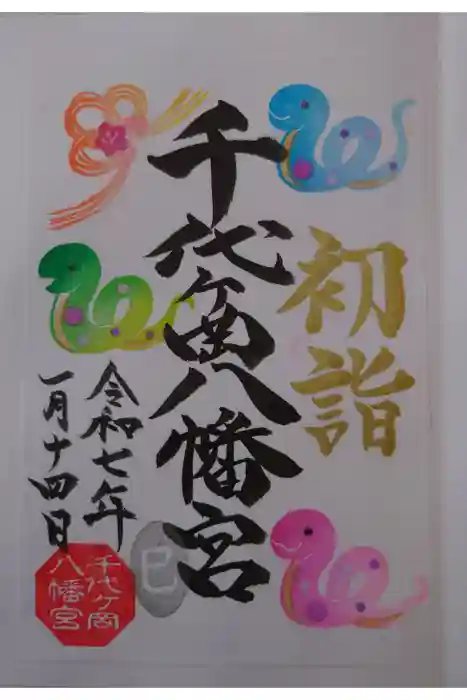 初詣
千代ヶ岡八幡宮
令和七年
一月十四日
巳
千代ヶ岡
八幡宮